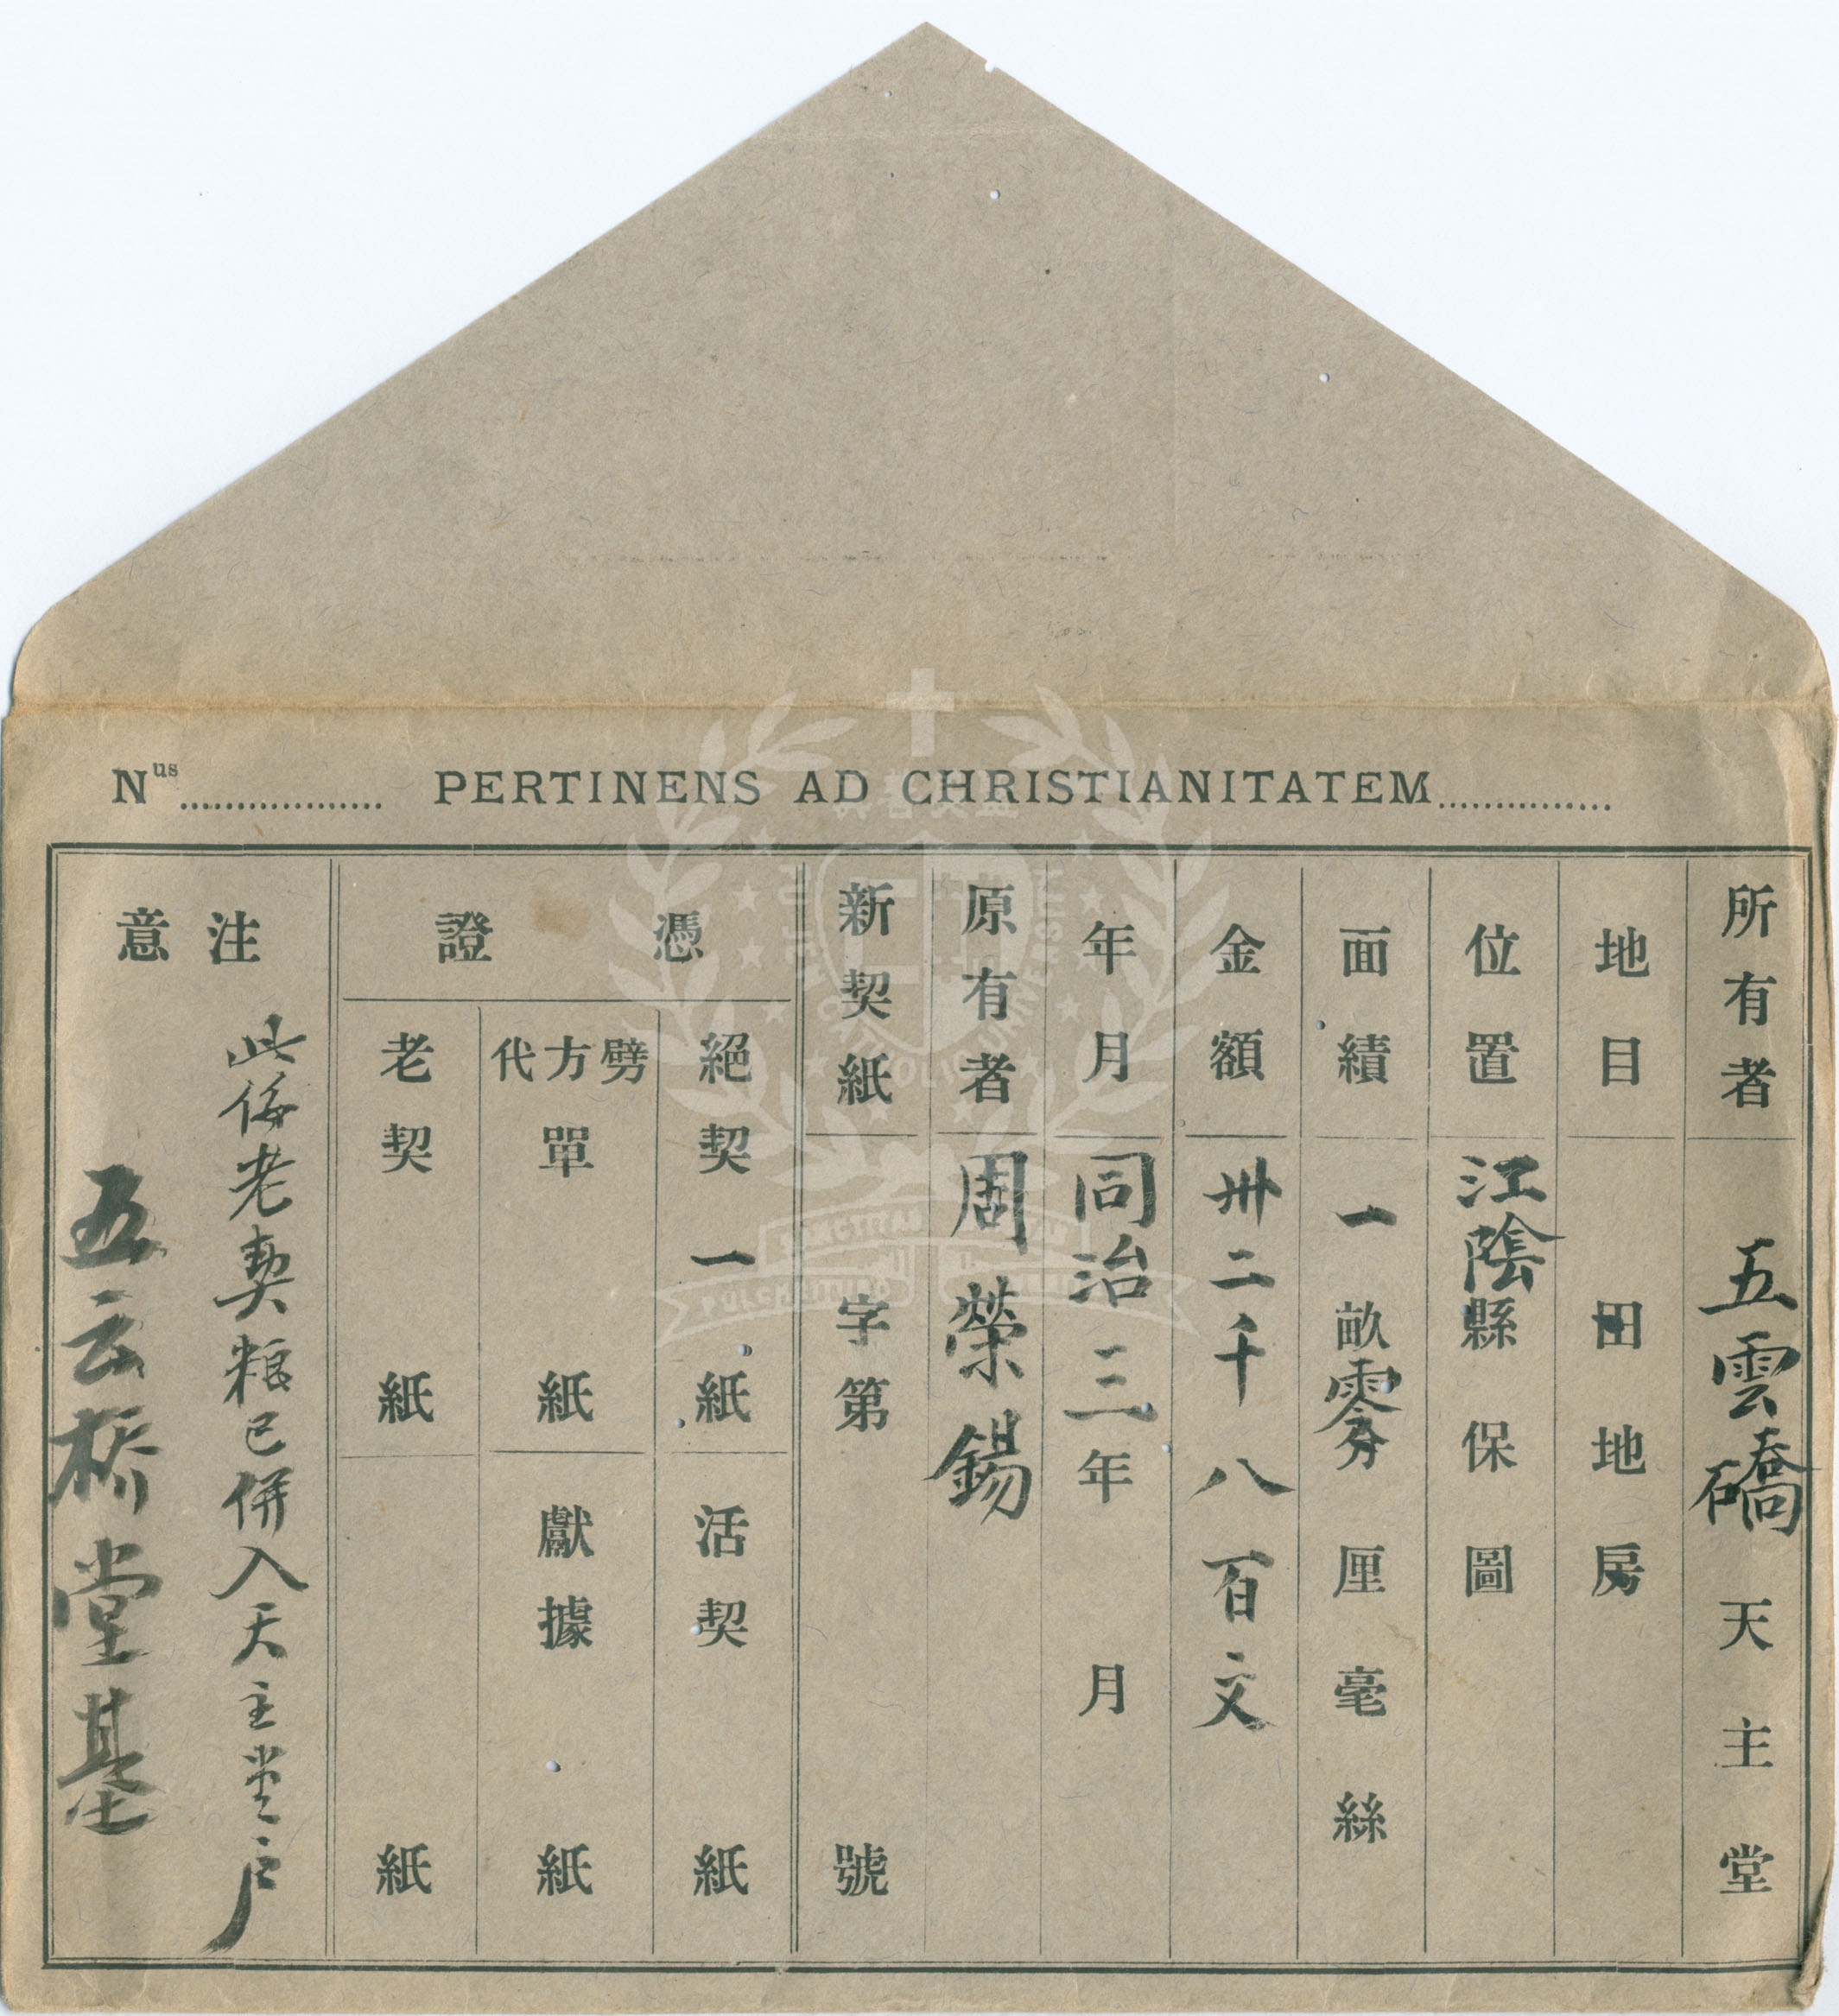 Nus.................. PERTINENS AD CHRISTIANITATEM...............
所有者 五雲礄天主堂
地目 田地房
位置 江陰縣保圖
面績 一畝零分厘毫絲
金額 卅二千八百文
年月 同治三年月
原有者 周榮錫
新契紙 字第號
憑證
絕契 一紙
活契 紙
劈方代單 紙
獻據 紙
老契 紙
紙
注意
此係老契粮已併入天主堂户
五云桥堂基